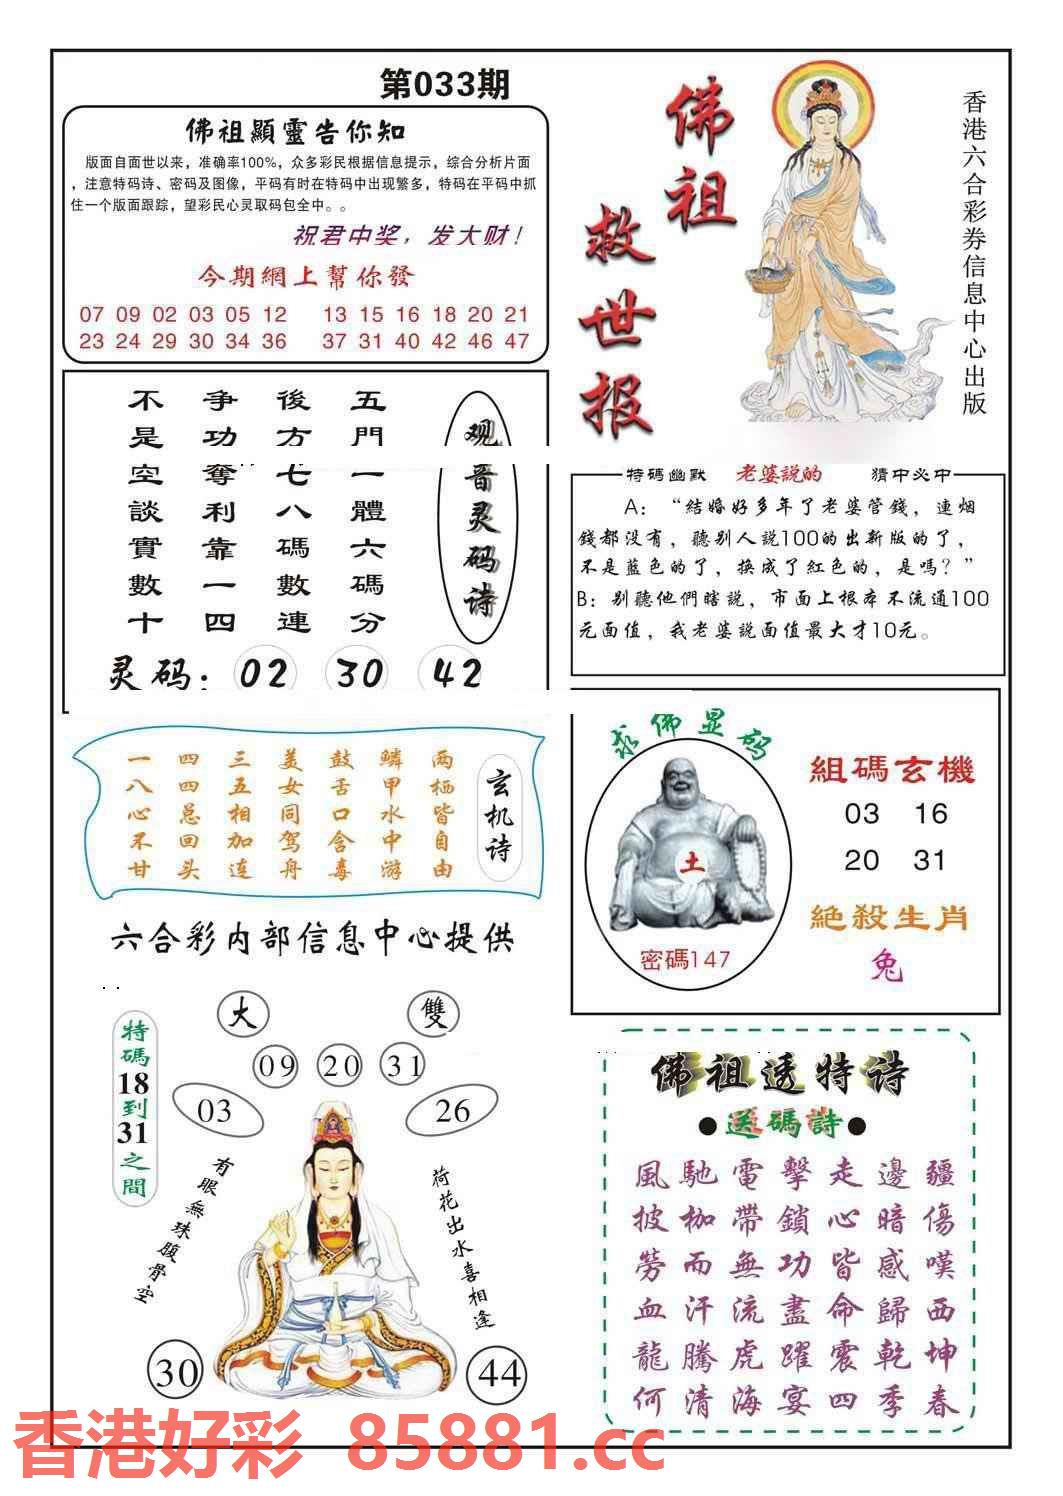 第033期
佛祖顯靈告你知
版面自面世以来，准确率100%，众多彩民根据信息提示，综合分析片面
，注意特码诗、密码及图像，平码有时在特码中出现繁多，特码在平码中抓
住一个版面跟踪，望彩民心灵取码包全中。。
祝君中奖，发大财！
今期網上幫你發
07 09 02 03 05 12 13 15 16 18 20 21
23 24 29 30 34 36 37 31 40 42 46 47
佛祖
救世报
香港六合彩券信息中心出版
观音灵码诗
五門一體六碼分
後方七八碼數連
争功奪利靠一四
不是空談實數十
灵码：02 30 42
特碼幽默 老婆説的 猜中必中
A：“結婚好多年了老婆管錢，連烟
錢都没有，聽别人説100的出新版的了，
不是藍色的了，换成了紅色的，是嗎？”
B：别聽他們瞎説，市面上根本不流通100
元面值，我老婆説面值最大才10元。
玄机诗
两栖皆自由
鳞甲水中游
鼓舌口含毒
美女同驾舟
三五相加连
四四总回头
一八心不甘
求佛显码
土
密碼147
組碼玄機
03 16
20 31
絕殺生肖
兔
六合彩内部信息中心提供
特碼18到31之間
大 雙
09 20 31
03 26
有眼無珠腹骨空
荷花出水喜相逢
30 44
佛祖透特诗
●送碼詩●
風馳電擊走邊疆
披枷帶鎖心暗傷
勞而無功皆感嘆
血汗流盡命歸西
龍騰虎躍震乾坤
何清海宴四季春
香港好彩 85881.cc